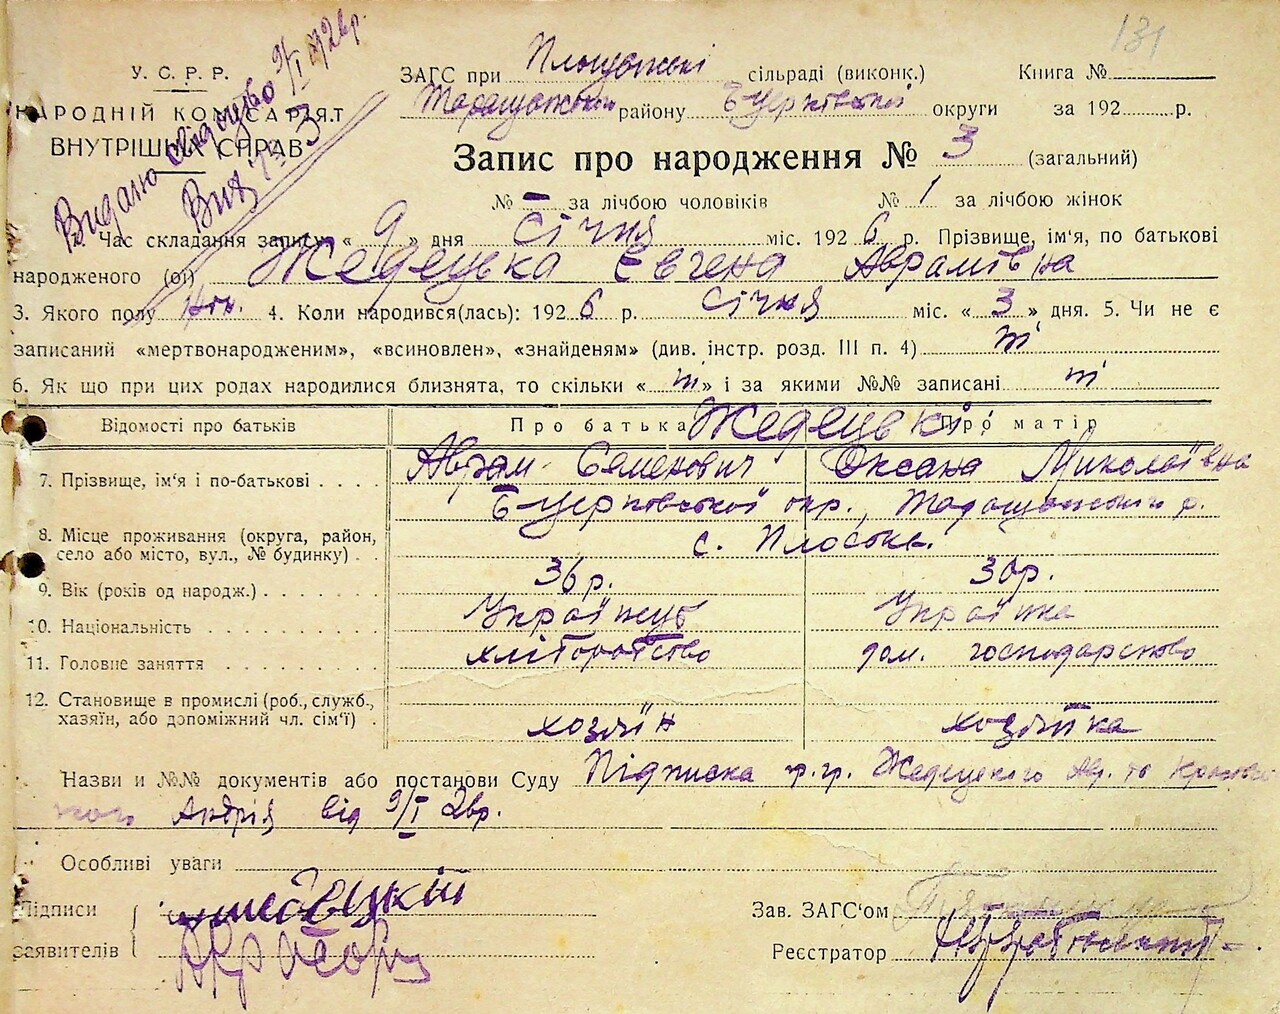 131
У. С. Р. Р.
НАРОДНІЙ КОМІСАРІЯТ
ВНУТРІШНІХ СПРАВ
Видано свідоцтво 9/I 192 6р.
Вид. № 3
ЗАГС при сільраді (виконк.) Книга №
Таращанськ району Б Церківської округи за 192 р.
Запис про народження № 3 (загальний)
№ – за лічбою чоловіків № 1 за лічбою жінок
Час складання запису « 9 » дня Січня міс. 192 6 р. Прізвище, ім'я, по батькові
народженого (ої) Жедецька Євгена Аврамівна
3. Якого полу жін. 4. Коли народився(лась): 192 6 р. Січня міс. « 3 » дня. 5. Чи не є
записаний «мертвонародженим», «всиновлен», «знайденям» (див. інстр. розд. III п. 4) ні
6. Як що при цих родах народилися близнята, то скільки « ні » і за якими №№ записані ні
Відомості про батьків Про батька Жедецькі Про матір
7. Прізвище, ім'я і по-батькові Аврам Семенович Оксана Миколаївна
8. Місце проживання (округа, район, село або місто, вул., № будинку) Б-Церковської окр., Таращанськ р.
с. Плоська.
9. Вік (років од народж.) 36 р. 30 р.
10. Національність Українець Українка
11. Головне заняття хліборобство дом. господарство
12. Становище в промислі (роб., служб., хазяїн, або допоміжний чл. сім'ї) хозяїн хозяйка
Назви и №№ документів або постанови Суду Підписка гр. гр. Жедецького Ав. та
Андрія від 9/I 26р.
Особливі уваги
Підписи заявителів
Зав. ЗАГС'ом
Реєстратор